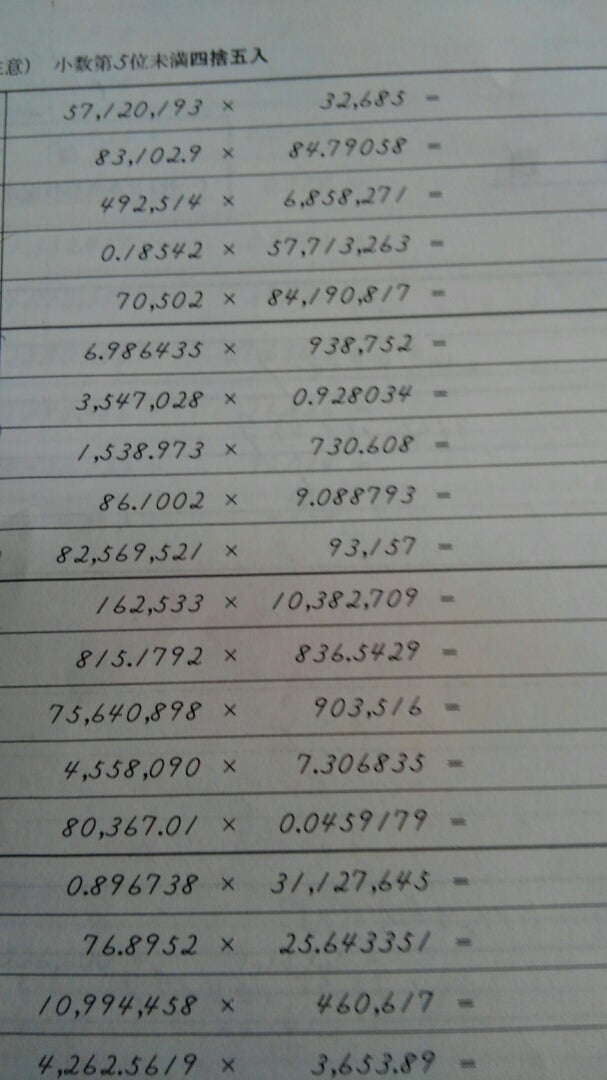 意) 小数第5位未満四捨五入
57,120,193 × 32,685 =
83,102.9 × 84.79058 =
492,514 × 6,858,271 =
0.18542 × 57,713,263 =
70,502 × 84,190,817 =
6.986435 × 938,752 =
3,547,028 × 0.928034 =
1,538.973 × 730.608 =
86.1002 × 9.088793 =
82,569,521 × 93,157 =
162,533 × 10,382,709 =
815.1792 × 836.5429 =
75,640,898 × 903,516 =
4,558,090 × 7.306835 =
80,367.01 × 0.0459179 =
0.896738 × 31,127,645 =
76.8952 × 25.643351 =
10,994,458 × 460,617 =
4,262.5619 × 3,653.89 =